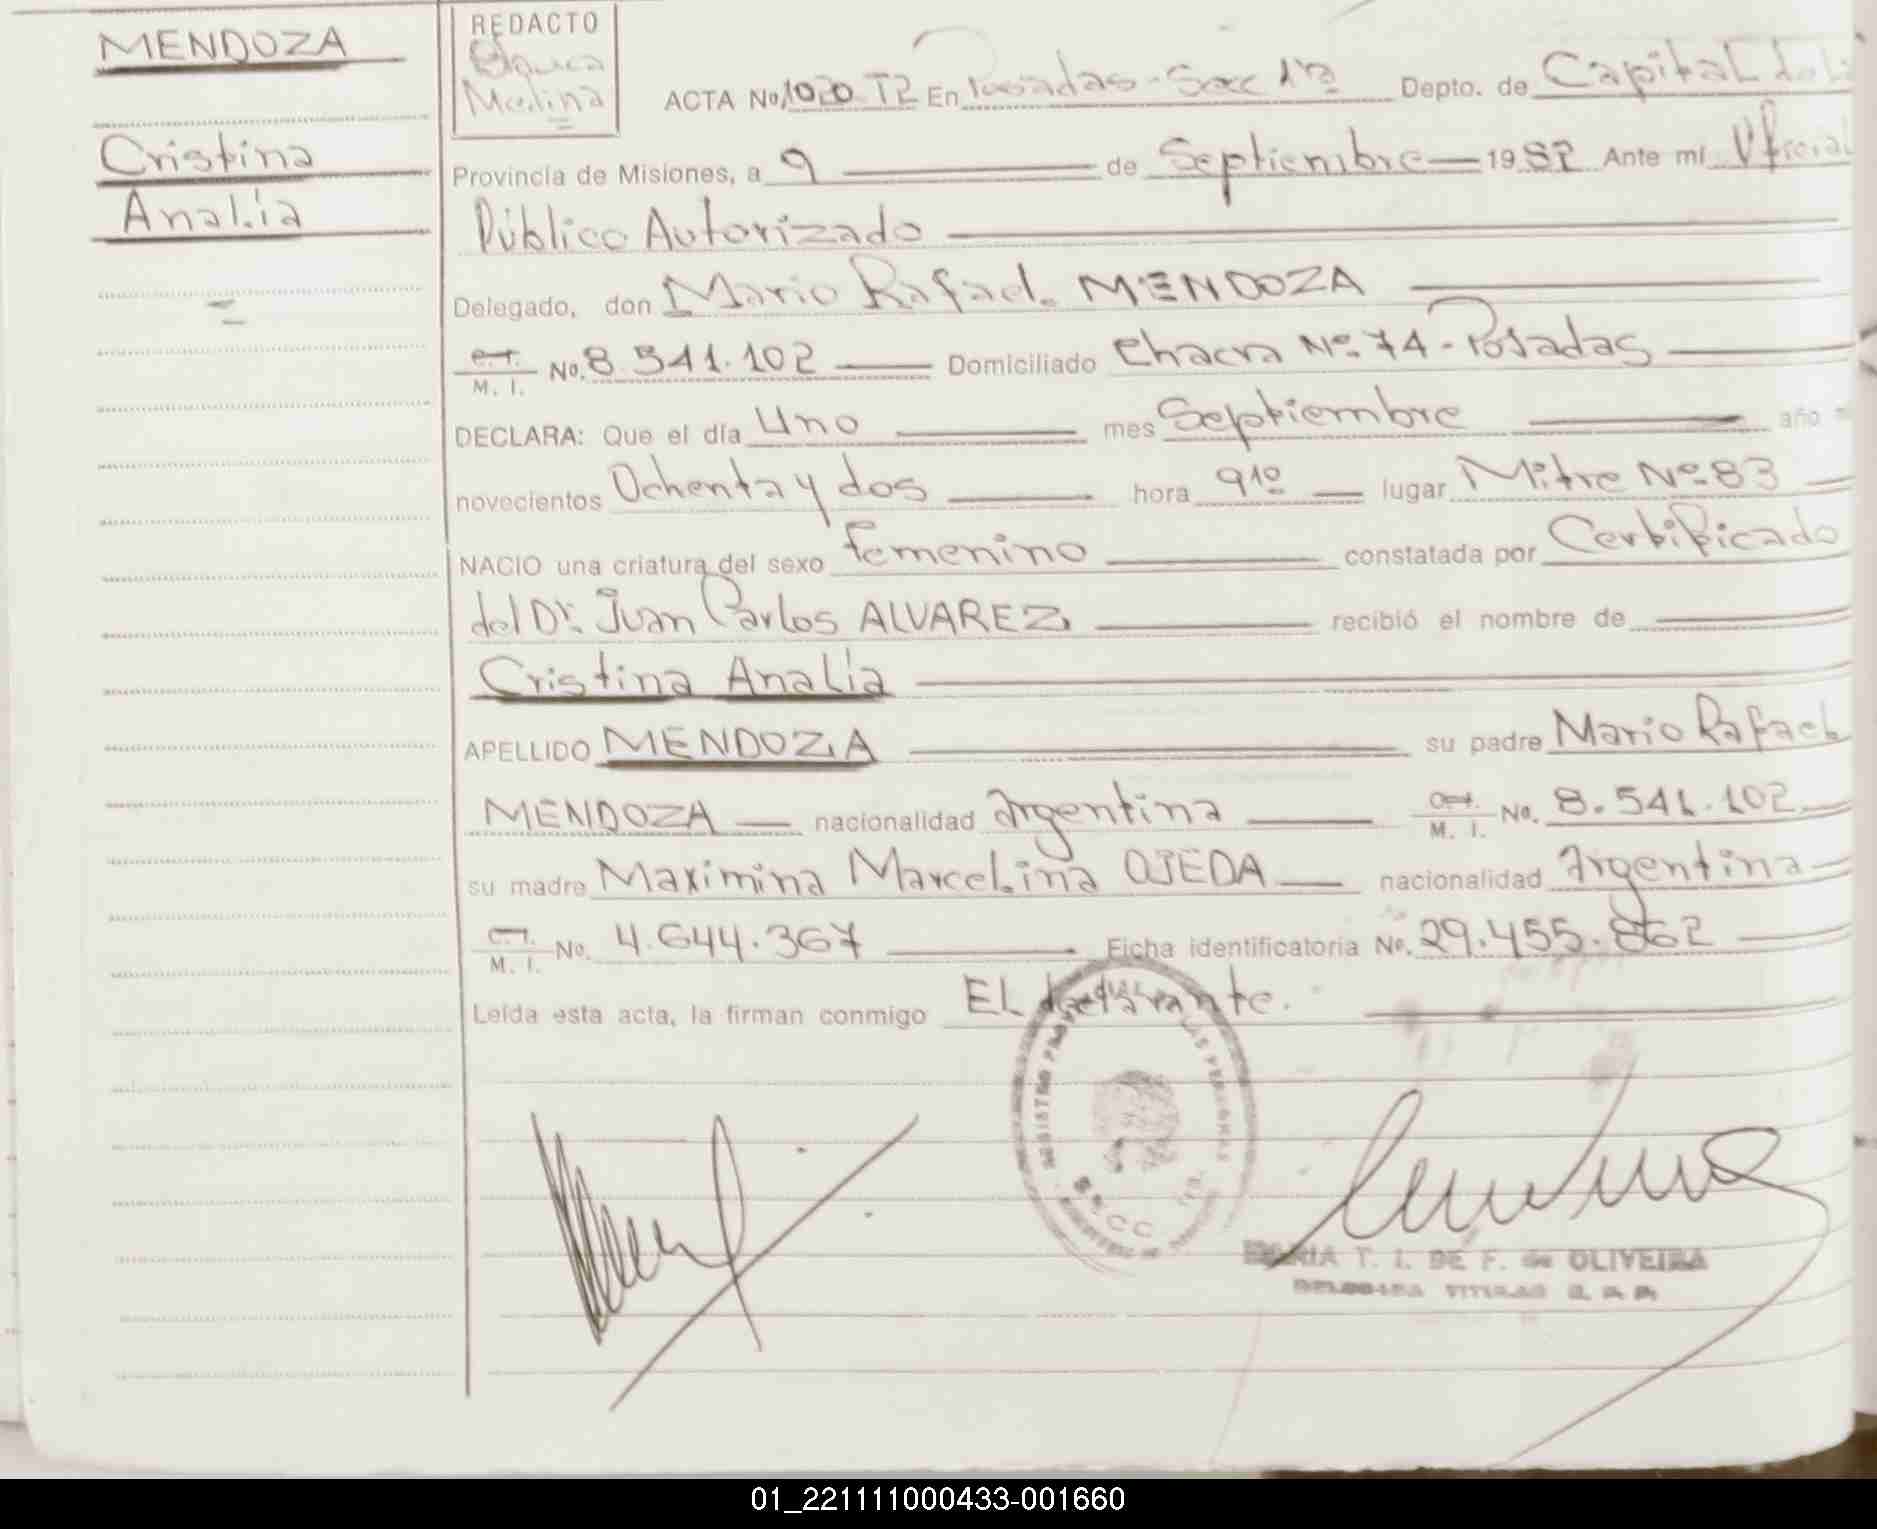 MENDOZA
Cristina
Analía
REDACTO
Blanca
Medina
ACTA No. 1020 T2 En Posadas - Secc 1ra Depto. de Capital de la
Provincia de Misiones, a 9 de Septiembre 1982 Ante mí Oficial
Público Autorizado
Delegado, don Mario Rafael MENDOZA
C.I. M. I. No. 8.541.102 Domiciliado Chacra Nº 74 - Posadas
DECLARA: Que el día Uno mes Septiembre año
novecientos Ochenta y dos hora 9 10 lugar Mitre Nº 83
NACIO una criatura del sexo femenino constatada por Certificado
del Dr. Juan Carlos ALVAREZ recibió el nombre de
Cristina Analía
APELLIDO MENDOZA su padre Mario Rafael
MENDOZA nacionalidad argentina C.I. M. I. No. 8.541.102
su madre Maximina Marcelina OJEDA nacionalidad Argentina
C.I. M. I. No. 4.644.367 Ficha identificatoria No. 29.455.862
Leída esta acta, la firman conmigo EL declarante.
REGISTRO LAS PERSONAS
MARIA T. I. DE F. de OLIVEIRA
DELEGADA TITULAR
01_221111000433-001660